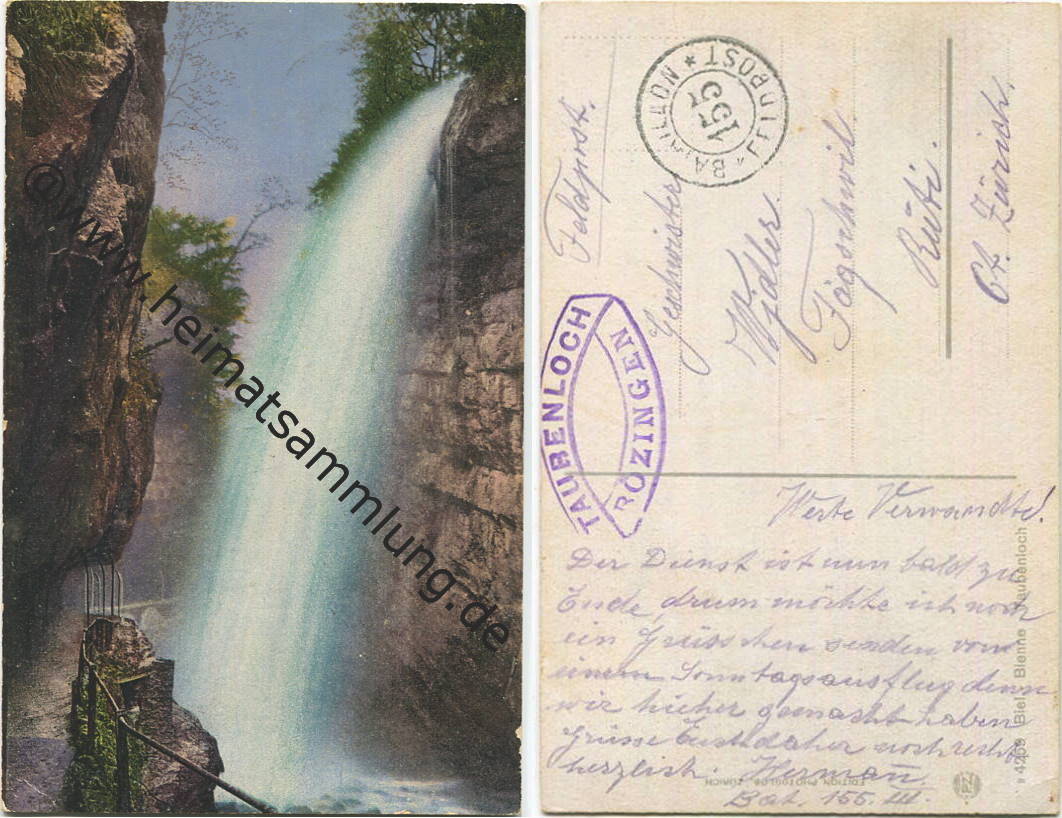 @www.heimatsammlung.de
Feldpost.
BATAILLON
* FELDPOST *
155
Geschwister
Widler.
Fägschwil.
Rüti.
Ct. Zürich.
TAUBENLOCH
BÖZINGEN
Werte Verwandte!
Der Dienst ist nun bald zu
Ende, drum möchte ich noch
ein Grüsschen senden von
einem Sonntagsausflug denn
wir hieher gemacht haben
Grüsse Euch daher noch recht
herzlich. Hermann
Bat. 155. III.
4269 Biel - Bienne Taubenloch
EDITION PHOTOGLOB ZÜRICH